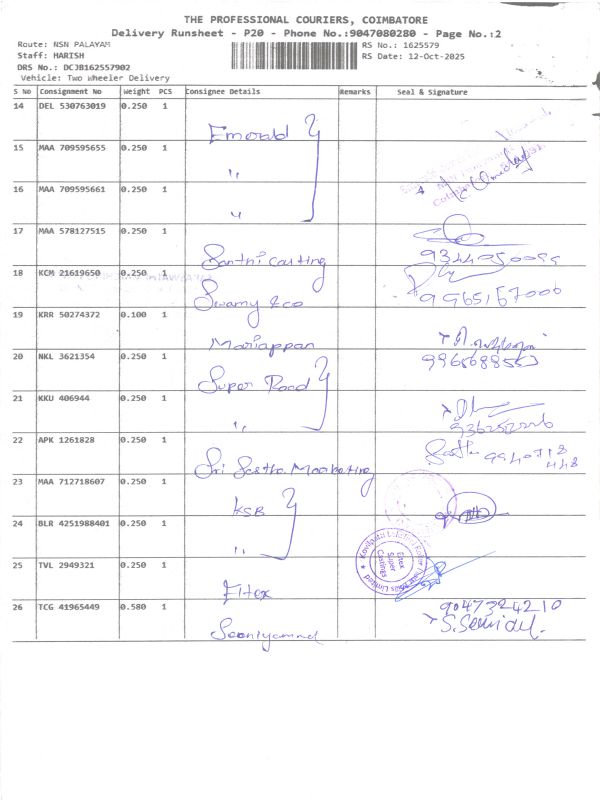 THE PROFESSIONAL COURIERS, COIMBATORE
Delivery Runsheet - P20 - Phone No.:9047080280 - Page No.:2
Route: NSN PALAYAM
RS No.: 1625579
Staff: HARISH
RS Date: 12-Oct-2025
DRS No.: DCJB162557902
Vehicle: Two Wheeler Delivery
S No Consignment No Weight PCS Consignee Details Remarks Seal & Signature
14 DEL 530763019 0.250 1
Emerald
15 MAA 709595655 0.250 1
"
16 MAA 709595661 0.250 1
"
17 MAA 578127515 0.250 1
Santhi Casting
18 KCM 21619650 0.250 1
Swamy
19 KRR 50274372 0.100 1
Mariappan
20 NKL 3621354 0.250 1
Super Road
21 KKU 406944 0.250 1
"
22 APK 1261828 0.250 1
Sri Sastha Marketing
23 MAA 712718607 0.250 1
KSB
24 BLR 4251988401 0.250 1
"
25 TVL 2949321 0.250 1
Eltex
Eltex Super Castings
26 TCG 41965449 0.580 1
9047324210